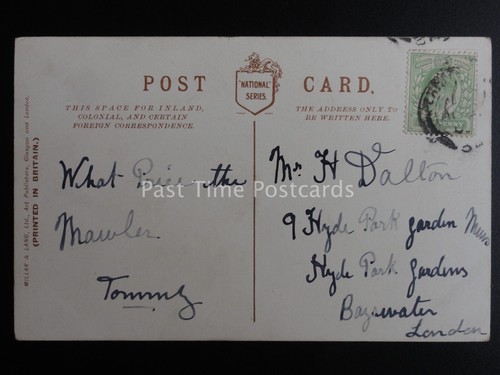 POST CARD.
"NATIONAL"
SERIES.
THIS SPACE FOR INLAND,
COLONIAL, AND CERTAIN
FOREIGN CORRESPONDENCE.
THE ADDRESS ONLY TO
BE WRITTEN HERE.
MILLAR & LANG, Ltd., Art Publishers, Glasgow and London.
(PRINTED IN BRITAIN.)
What Price the
Mawler
Tommy
Mr H Dalton
9 Hyde Park garden
Hyde Park gardens
Bayswater
London
Past Time Postcards